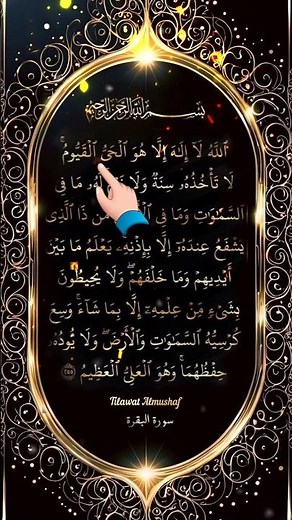 بِسْمِ ٱللَّهِ ٱلرَّحْمَٰنِ ٱلرَّحِيمِ
ٱللَّهُ لَآ إِلَٰهَ إِلَّا هُوَ ٱلْحَىُّ ٱلْقَيُّومُ ۚ
لَا تَأْخُذُهُۥ سِنَةٌ وَلَا مَا فِى
ٱلسَّمَٰوَٰتِ وَمَا فِى ذَا ٱلَّذِى
يَشْفَعُ عِندَهُۥٓ إِلَّا بِإِذْنِهِۦ ۚ يَعْلَمُ مَا بَيْنَ
أَيْدِيهِمْ وَمَا خَلْفَهُمْ ۖ وَلَا يُحِيطُونَ
بِشَىْءٍ مِّنْ عِلْمِهِۦٓ إِلَّا بِمَا شَآءَ ۚ وَسِعَ
كُرْسِيُّهُ ٱلسَّمَٰوَٰتِ وَٱلْأَرْضَ ۖ وَلَا يَـُٔودُهُۥ
حِفْظُهُمَا ۚ وَهُوَ ٱلْعَلِىُّ ٱلْعَظِيمُ ٢٥٥
Tilawat Almushaf
سورة البقرة